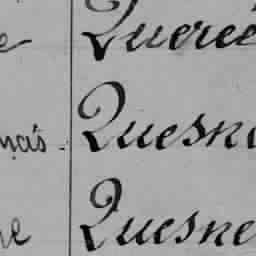 e Queree
nçois. Quesn
ne Quesne